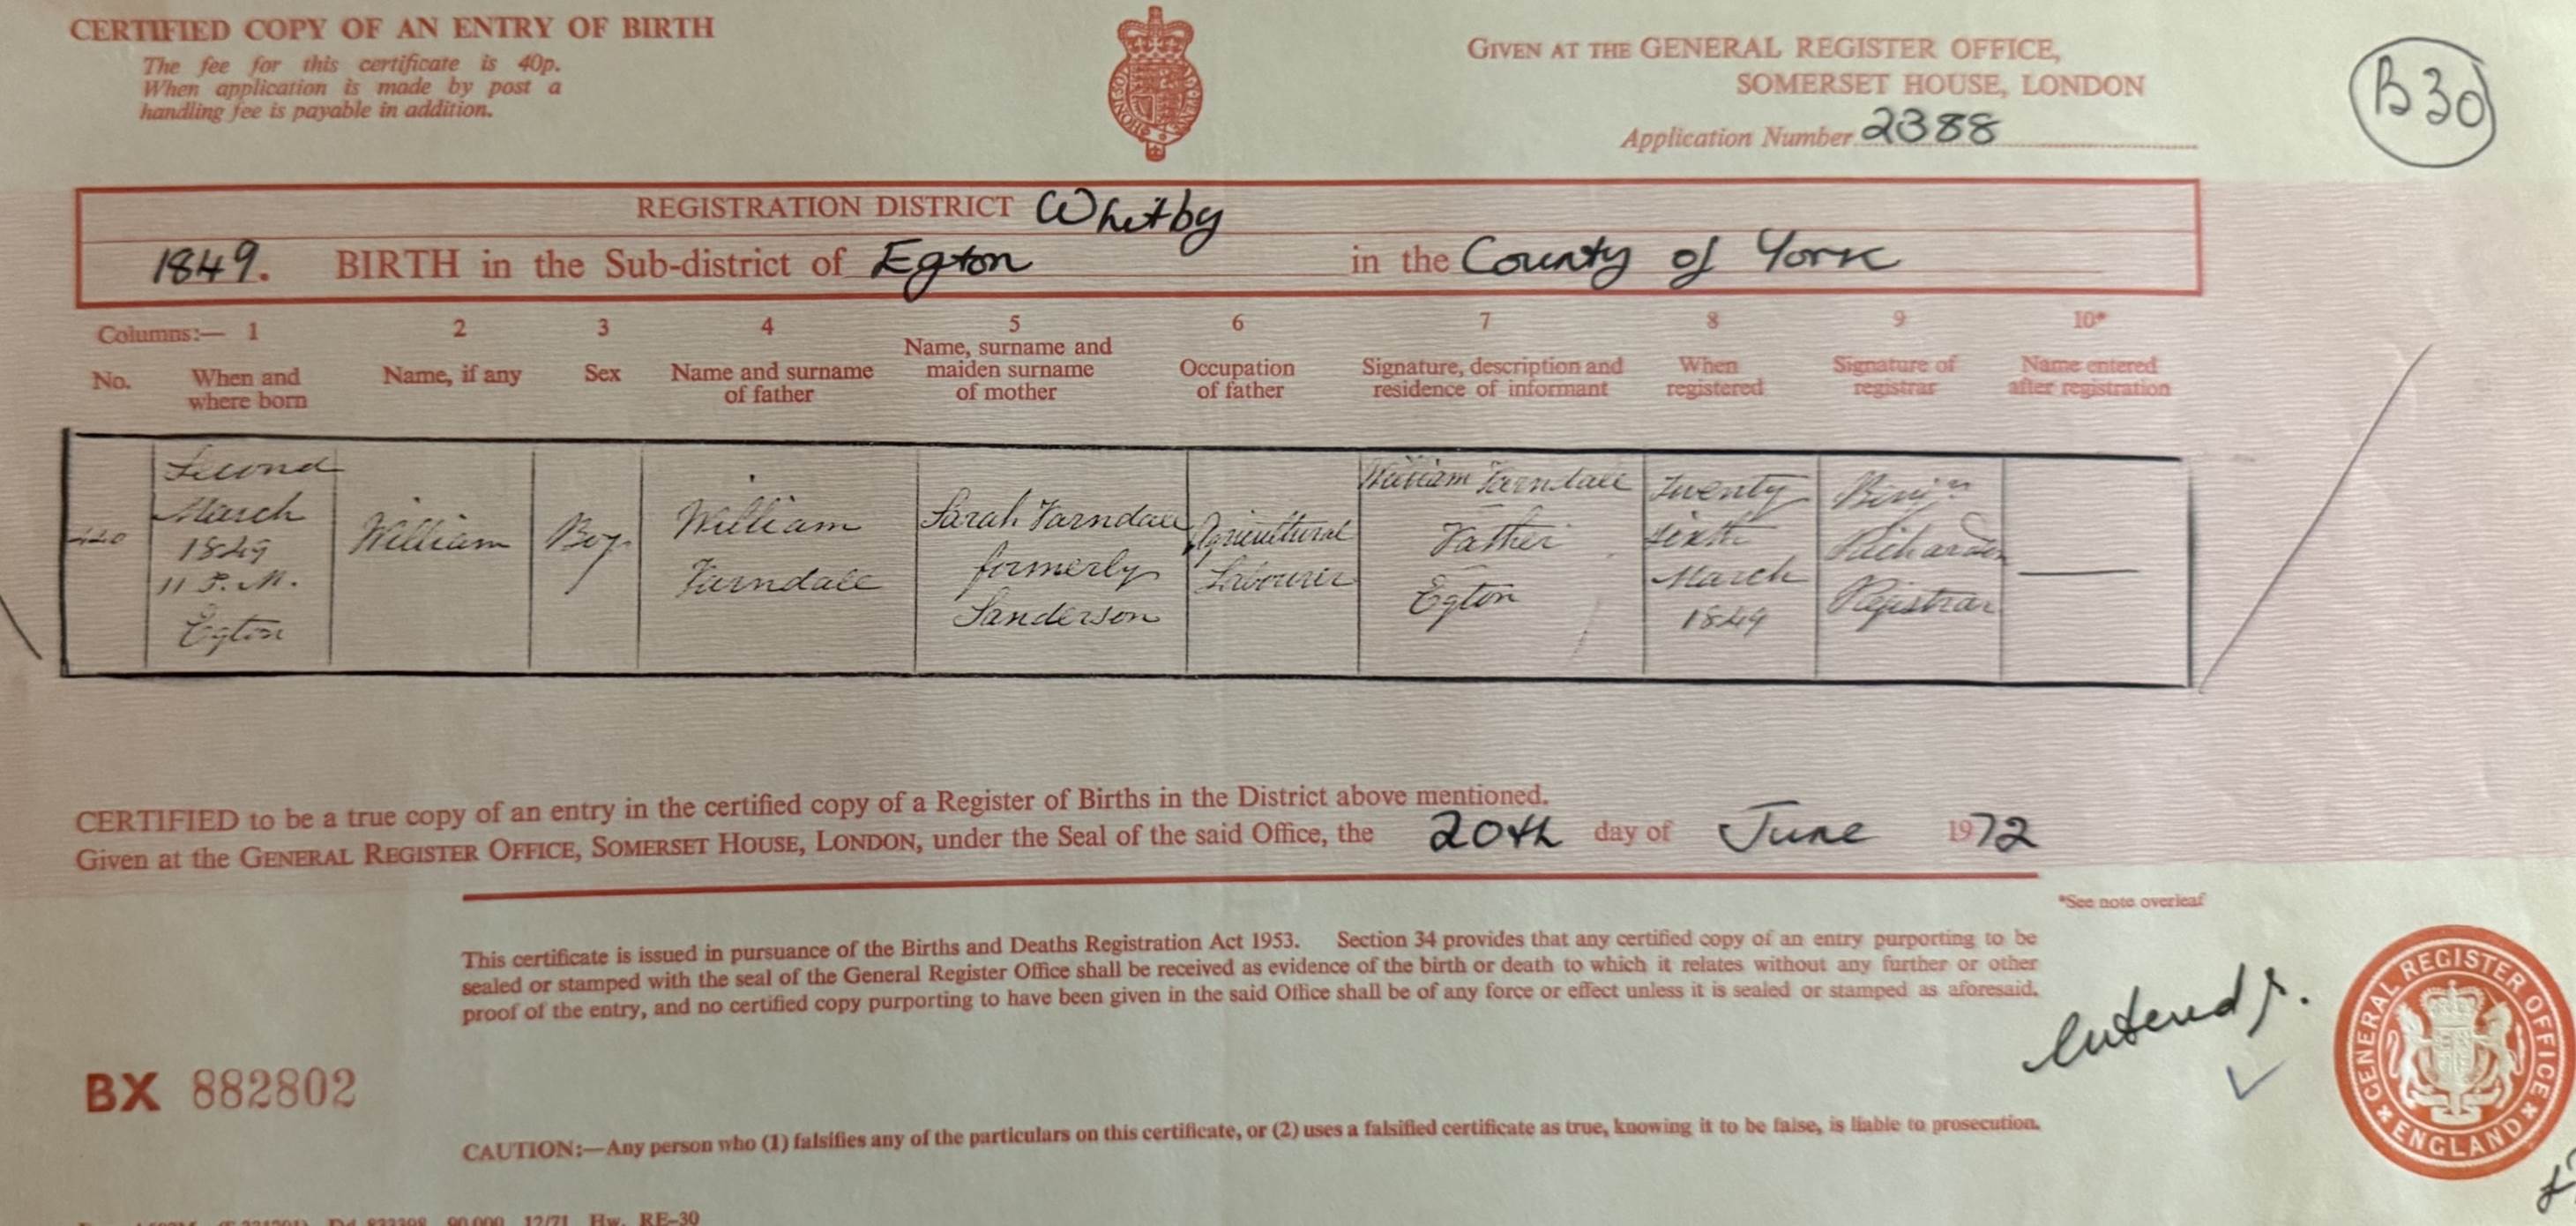 CERTIFIED COPY OF AN ENTRY OF BIRTH
The fee for this certificate is 40p.
When application is made by post a
handling fee is payable in addition.
GIVEN AT THE GENERAL REGISTER OFFICE,
SOMERSET HOUSE, LONDON
Application Number 2388
B30
REGISTRATION DISTRICT Whitby
1849. BIRTH in the Sub-district of Egton in the County of York
Columns:— 1 2 3 4 5 6 7 8 9 10*
No.
When and
where born
Name, if any
Sex
Name and surname
of father
Name, surname and
maiden surname
of mother
Occupation
of father
Signature, description and
residence of informant
When
registered
Signature of
registrar
Name entered
after registration
Second
March
1849
11 P.M.
Egton
William
Boy
William
Farndale
Sarah Farndale
formerly
Sanderson
Agricultural
Labourer
William Farndale
Father
Egton
Twenty
sixth
March
1849
Richardson
Registrar
CERTIFIED to be a true copy of an entry in the certified copy of a Register of Births in the District above mentioned.
Given at the GENERAL REGISTER OFFICE, SOMERSET HOUSE, LONDON, under the Seal of the said Office, the 20th day of June 1972
*See note overleaf
This certificate is issued in pursuance of the Births and Deaths Registration Act 1953. Section 34 provides that any certified copy of an entry purporting to be
sealed or stamped with the seal of the General Register Office shall be received as evidence of the birth or death to which it relates without any further or other
proof of the entry, and no certified copy purporting to have been given in the said Office shall be of any force or effect unless it is sealed or stamped as aforesaid.
entered
GENERAL REGISTER OFFICE
ENGLAND
BX 882802
CAUTION:—Any person who (1) falsifies any of the particulars on this certificate, or (2) uses a falsified certificate as true, knowing it to be false, is liable to prosecution.
12/71 Hw. RE-30